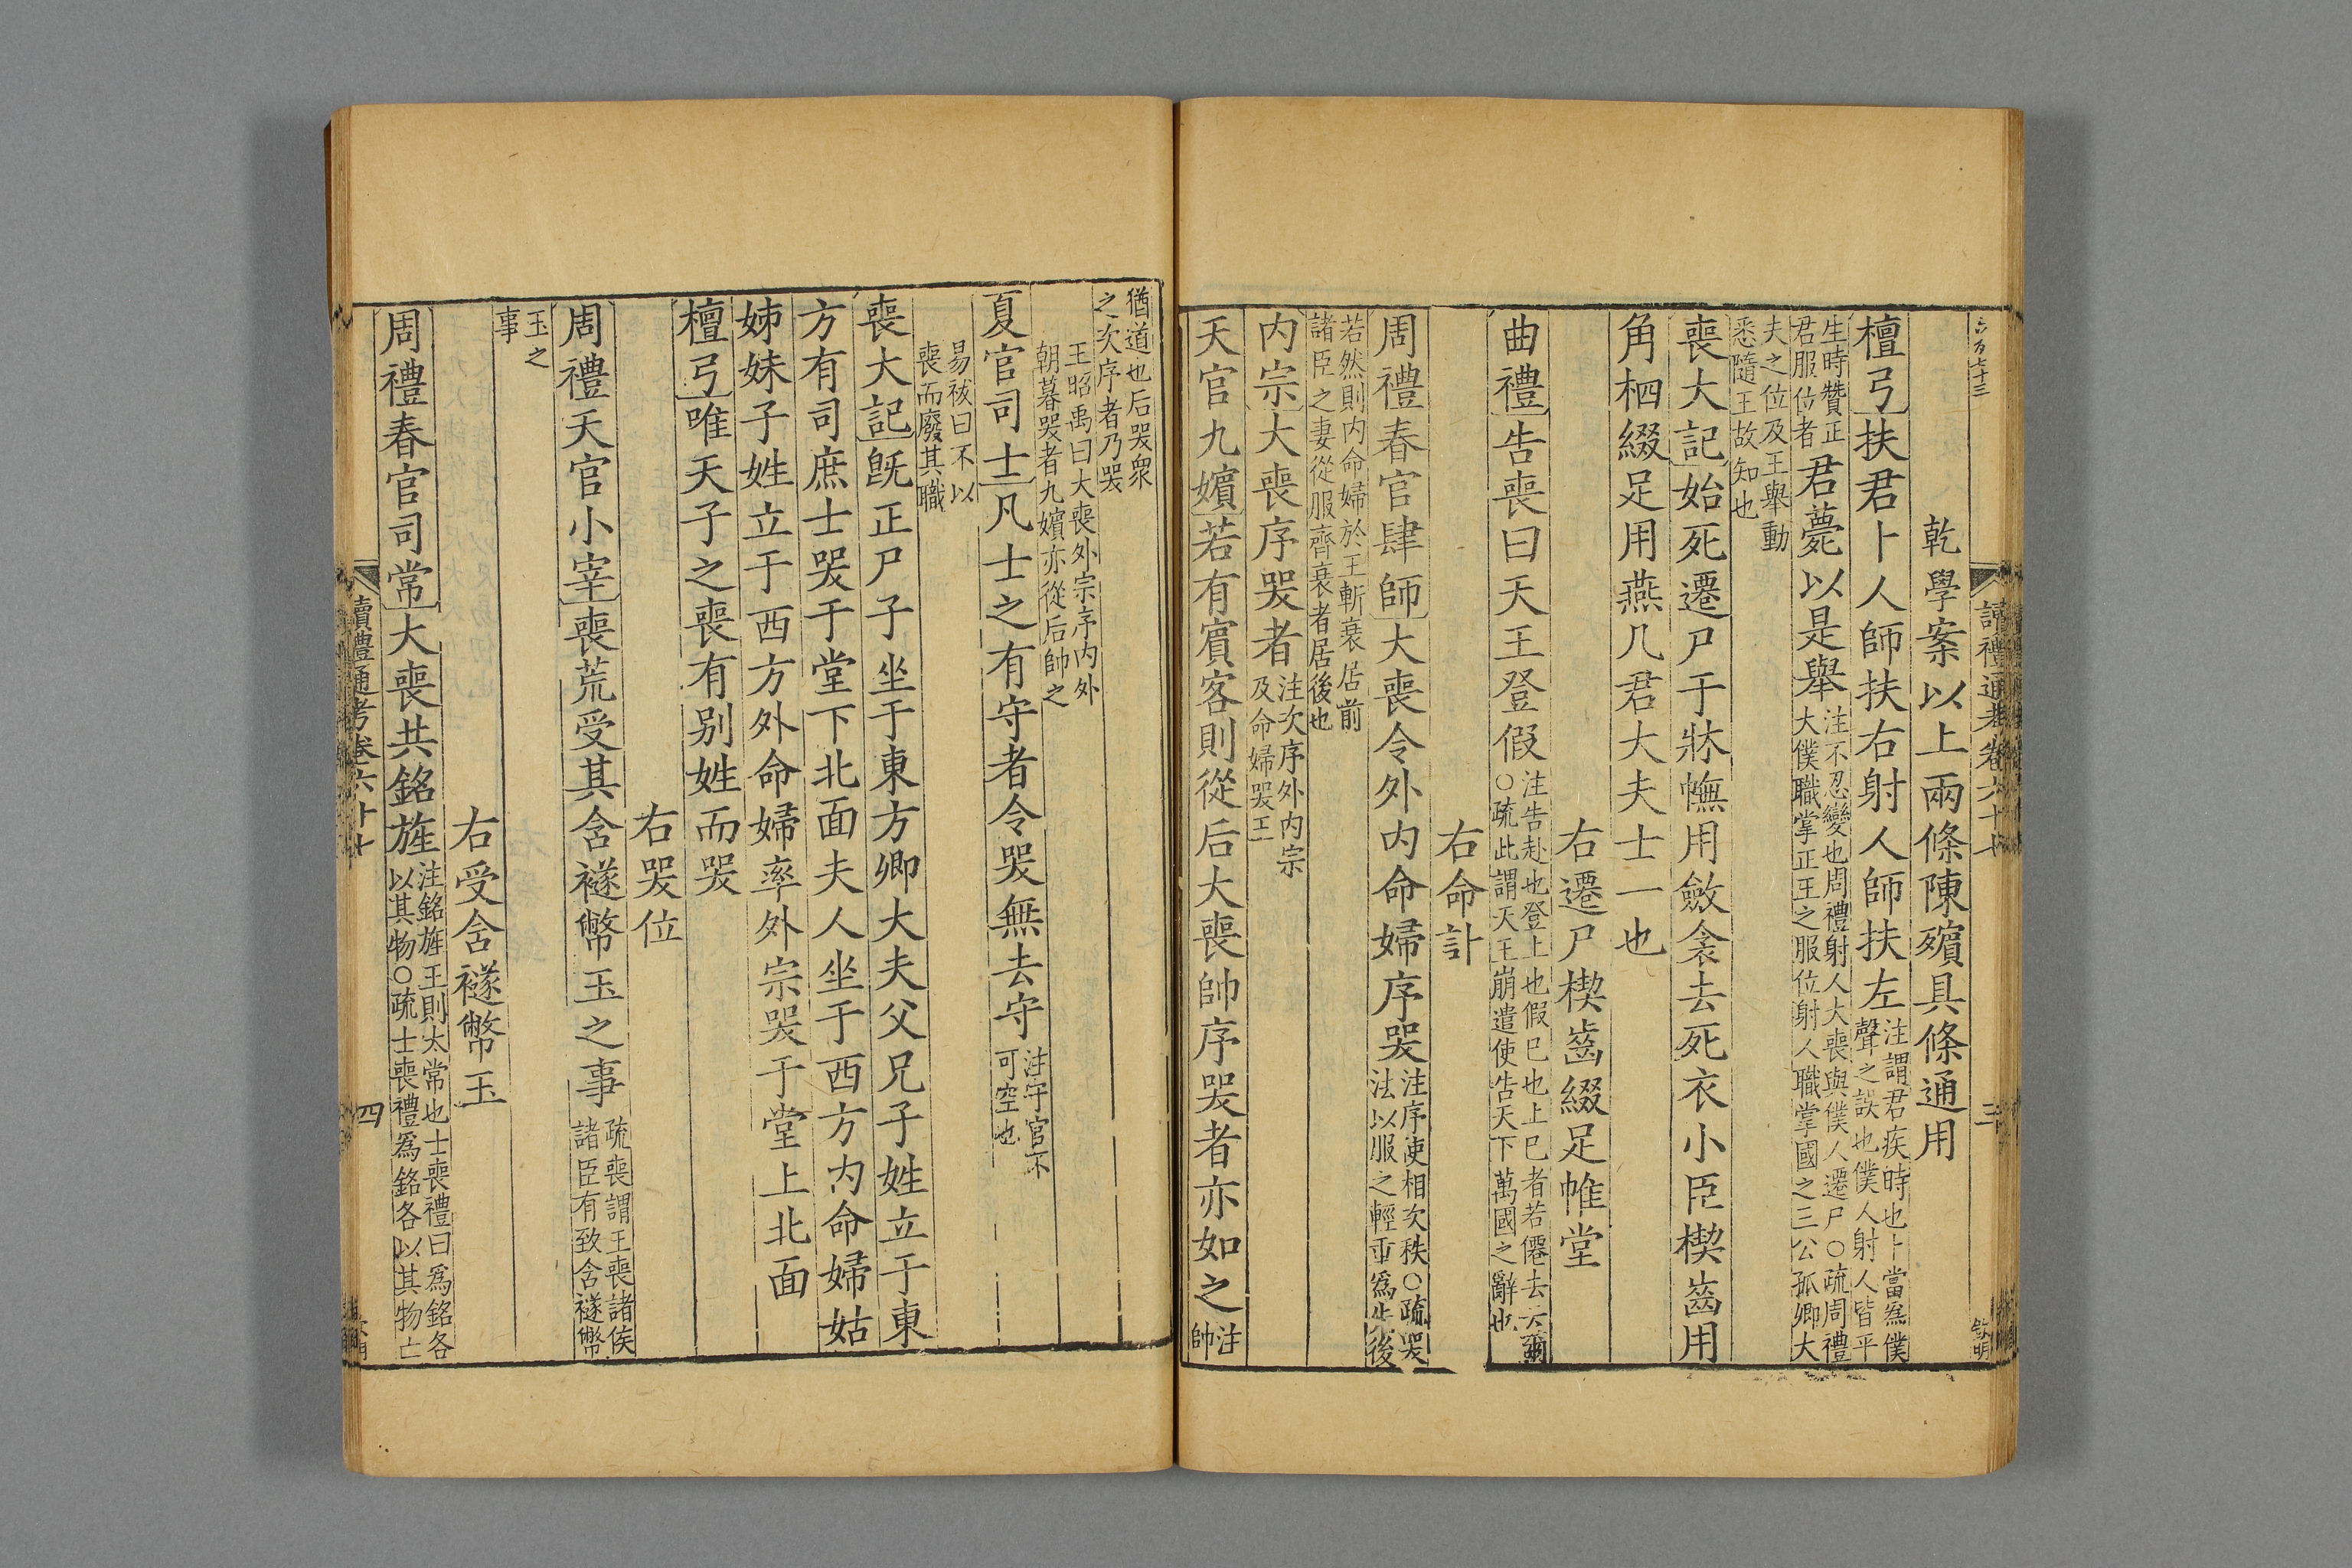 讀禮通考卷六十七
三
乾學案以上兩條陳殯具條通用
檀弓扶君卜人師扶右射人師扶左注謂君疾時也卜當爲僕聲之誤也僕人射人皆平
生時贊正君服位者君薨以是舉注不忍變也周禮射人大喪與僕人遷尸○疏周禮大僕職掌正王之服位射人職掌國之三公孤卿大
夫之位及王舉動悉隨王故知也
喪大記始死遷尸于牀幠用斂衾去死衣小臣楔齒用
角柶綴足用燕几君大夫士一也
右遷尸楔齒綴足帷堂
曲禮告喪曰天王登假注告赴也登上也假已也上已者若僊去云爾○疏此謂天王崩遣使告天下萬國之辭也
右命訃
周禮春官肆師大喪令外内命婦序哭注序使相次秩○疏哭法以服之輕重爲先後
若然則内命婦於王斬衰居前諸臣之妻從服齊衰者居後也
内宗大喪序哭者注次序外内宗及命婦哭王
天官九嬪若有賓客則從后大喪帥序哭者亦如之注帥
猶道也后哭衆之次序者乃哭
王昭禹曰大喪外宗序内外朝暮哭者九嬪亦從后帥之
夏官司士凡士之有守者令哭無去守注守官不可空也
易祓曰不以喪而廢其職
喪大記旣正尸子坐于東方卿大夫父兄子姓立于東
方有司庶士哭于堂下北面夫人坐于西方内命婦姑
姊妹子姓立于西方外命婦率外宗哭于堂上北面
檀弓唯天子之喪有别姓而哭
右哭位
周禮天官小宰喪荒受其含襚幣玉之事疏喪謂王喪諸侯諸臣有致含襚幣
玉之事
右受含襚幣玉
周禮春官司常大喪共銘旌注銘旌王則太常也士喪禮曰爲銘各以其物○疏士喪禮爲銘各以其物亡
讀禮通考卷六十七
四